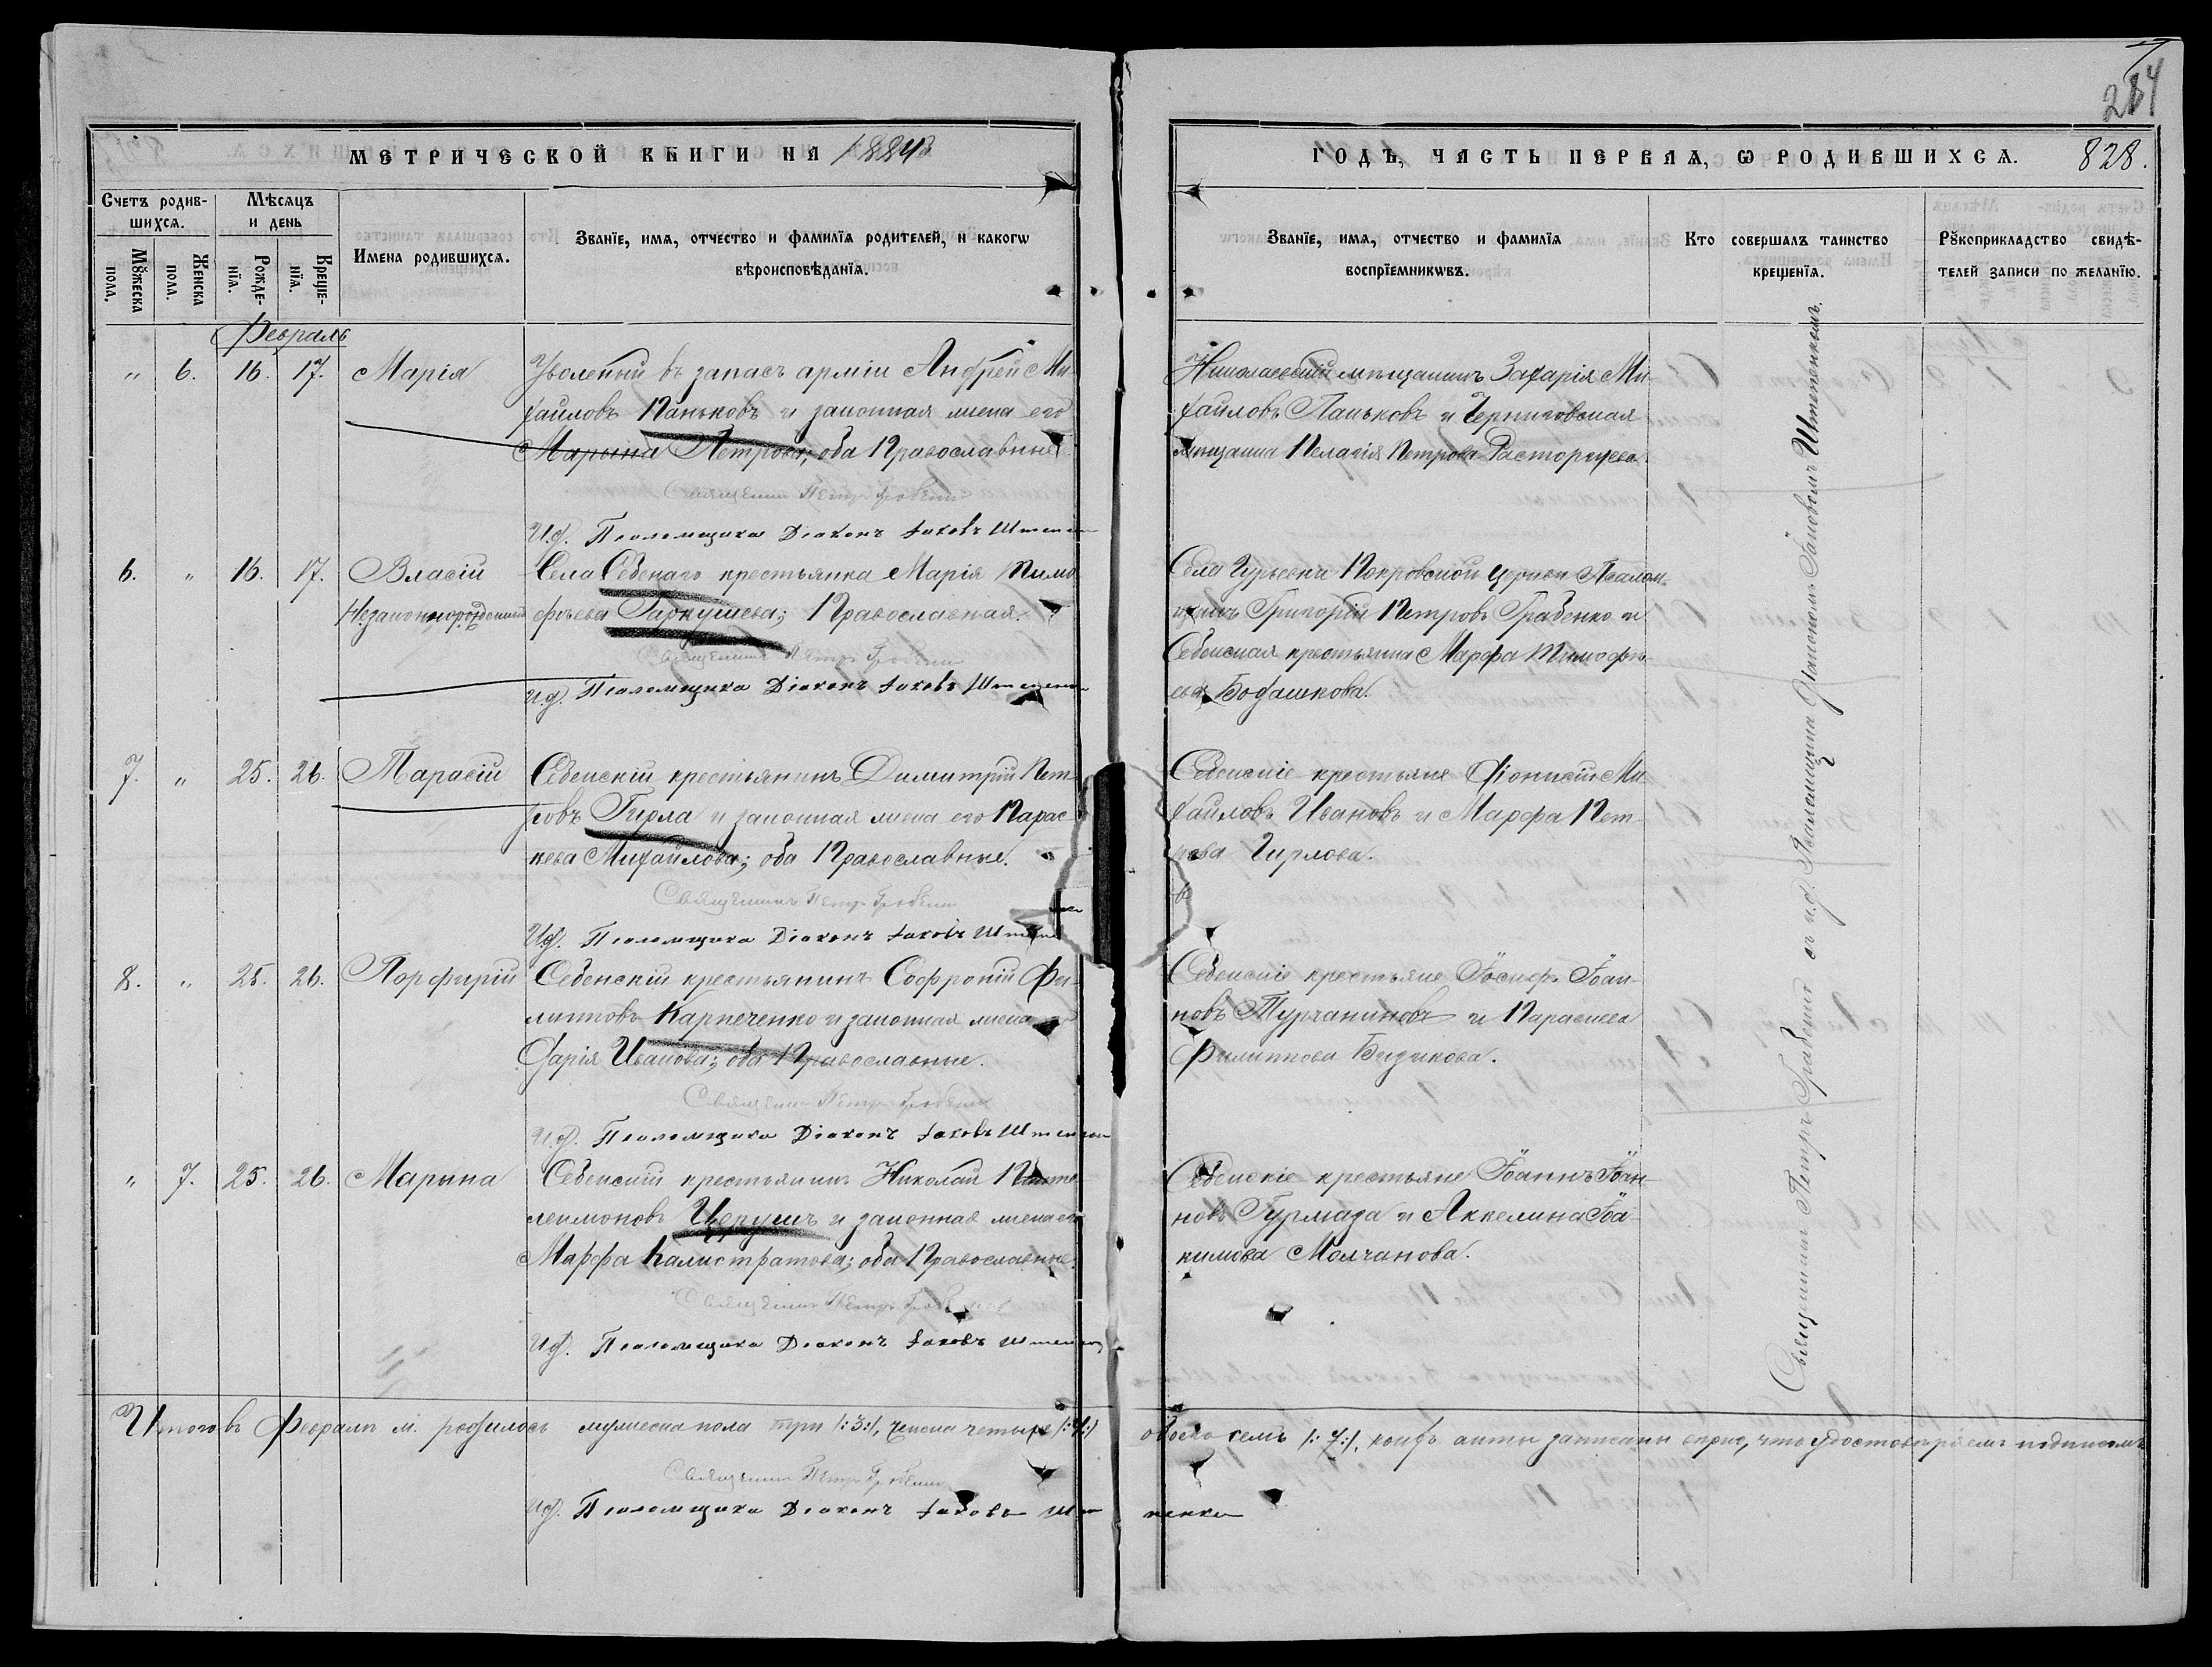 284
МЕТРИЧЕСКОЙ КНИГИ НА 1884й
ГОДЪ, ЧАСТЬ ПЕРВАЯ, Ѡ РОДИВШИХСѦ. 828.
Счетъ родив-
шихсѧ.
Мѣсѧцъ
и день
Мꙋжеска
пола.
Женска
пола.
Рожде-
нїѧ.
Креще-
нїѧ.
Имена родившихсѧ.
Званїе, имѧ, отчество и фамилїѧ родителей, и какогѡ
вѣроисповѣданїѧ.
Званїе, имѧ, отчество и фамилїѧ
воспрїемникѡвъ.
Кто совершалъ таинство
крещенїѧ.
Рꙋкоприкладство свидѣ-
телей записи по желанїю.
Февраль
" 6. 16. 17. Марія
Уволенный въ запасъ арміи Андрей Ми-
хайловъ Паньковъ и законная жена его
Марына Петрова; оба Православные.
Священникъ Петръ Грабенко
И.д. Псаломщика Діаконъ Іаковъ
Николаевскій мѣщанинъ Захарія Ми-
хайловъ Паньковъ и Черниговская
мѣщанка Пелагія Петрова Расторгуева.
6. " 16. 17. Власій
Незаконнорожденный
Села Себенаго крестьянка Марія Тимо
фѣева Гаркушева; Православная.
Священникъ Петръ Грабенко
И.д. Псаломщика Діаконъ Іаковъ
Села Гурьевки Покровской церкви Псалом-
щикъ Григорій Петровъ Грабенко и
Себенская крестьянка Марфа Тимофѣ-
ева Бодашкова.
7. " 25. 26. Тарасій
Себенскій крестьянинъ Димитрій Пет-
ровъ Гирла и законная жена его Парас-
кева Михайлова; оба Православные.
Священникъ Петръ Грабенко
И.д. Псаломщика Діаконъ Іаковъ
Себенскіе крестьяне Діонисій Ми-
хайловъ Ивановъ и Марфа Пет-
рова Гирлова.
8. " 25. 26. Порфирій
Себенскій крестьянинъ Софроній Фи-
липповъ Карпеченко и законная жена его
Дарія Иванова; оба Православные.
Священникъ Петръ Грабенко
И.д. Псаломщика Діаконъ Іаковъ
Себенскіе крестьяне Іосифъ Іоан-
новъ Турчаниновъ и Параскева
Филиппова Бизикова.
" 7. 25. 26. Марына
Себенскій крестьянинъ Николай Панте
леимоновъ Церушъ и законная жена его
Марфа Калистратова; оба Православные.
Священникъ Петръ Грабенко
И.д. Псаломщика Діаконъ Іаковъ
Себенскіе крестьяне Іоаннъ Іоан-
новъ Гурмаза и Акелина Іоа-
кимова Молчанова.
Священникъ Петръ Грабенко съ и.д. Псаломщика Діакономъ Іаковомъ Штепенкомъ.
Итого въ Февралѣ м. родилось мужеска пола три /:3:/, женска четыре /:4:/ обоего семь /:7:/, коихъ акты записаны вѣрно, что удостовѣряемъ подписомъ
Священникъ Петръ Грабенко
И.д. Псаломщика Діаконъ Іаковъ Штепенко